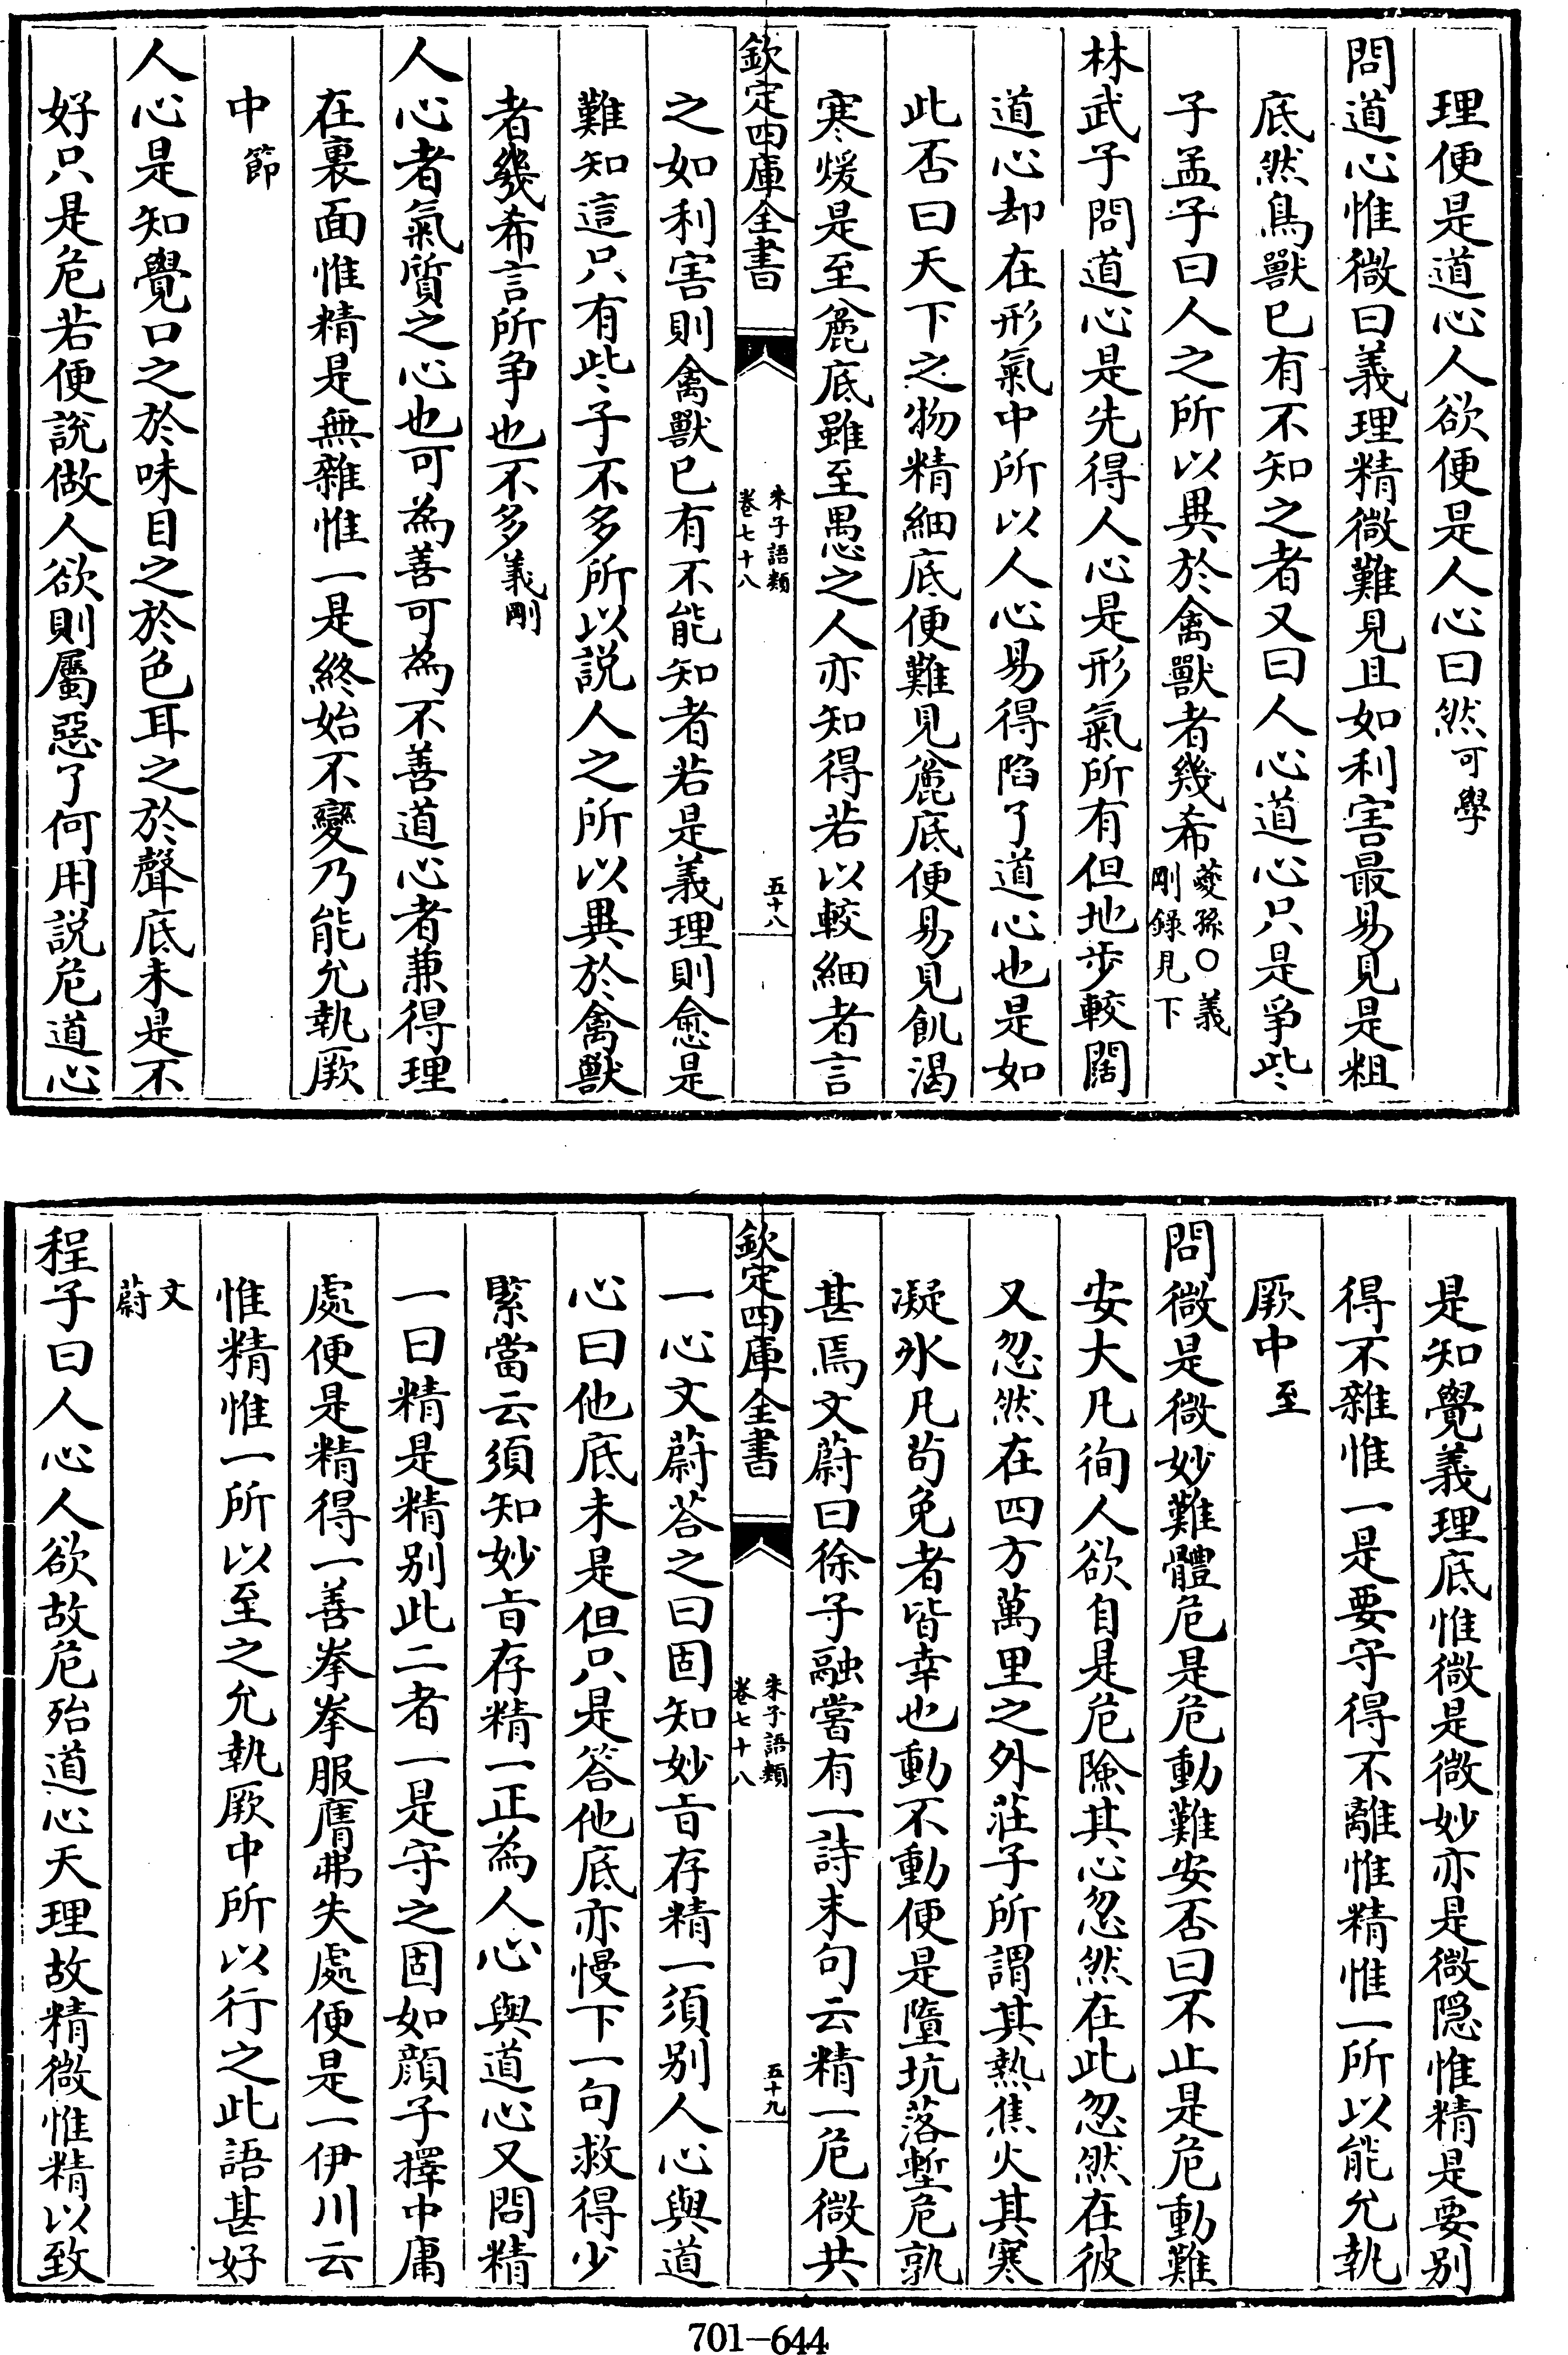 理便是道心人欲便是人心曰然可學
問道心惟微曰義理精微難見且如利害最易見是粗
底然鳥獸已有不知之者又曰人心道心只是爭些
子孟子曰人之所以異於禽獸者幾希夔孫○義
剛錄見下
林武子問道心是先得人心是形氣所有但地步較闊
道心却在形氣中所以人心易得陷了道心也是如
此否曰天下之物精細底便難見麄底便易見飢渴
寒煖是至麄底雖至愚之人亦知得若以較細者言
欽定四庫全書
朱子語類
卷七十八
五十八
之如利害則禽獸已有不能知者若是義理則愈是
難知這只有些子不多所以說人之所以異於禽獸
者幾希言所争也不多義剛
人心者氣質之心也可為善可為不善道心者兼得理
在裏面惟精是無雜惟一是終始不變乃能允執厥
中節
人心是知覺口之於味目之於色耳之於聲底未是不
好只是危若便說做人欲則屬惡了何用説危道心
是知覺義理底惟微是微妙亦是微隠惟精是要别
得不雜惟一是要守得不離惟精惟一所以能允執
厥中至
問微是微妙難體危是危動難安否曰不止是危動難
安大凡徇人欲自是危險其心忽然在此忽然在彼
又忽然在四方萬里之外莊子所謂其熱焦火其寒
凝氷凡苟免者皆幸也動不動便是墮坑落塹危孰
甚焉文蔚曰徐子融嘗有一詩末句云精一危微共
欽定四庫全書
朱子語類
卷七十八
五十九
一心文蔚荅之曰固知妙㫖存精一須别人心與道
心曰他底未是但只是答他底亦慢下一句救得少
緊當云須知妙㫖存精一正為人心與道心又問精
一曰精是精别此二者一是守之固如顔子擇中庸
處便是精得一善拳拳服膺弗失處便是一伊川云
惟精惟一所以至之允執厥中所以行之此語甚好
文
蔚
程子曰人心人欲故危殆道心天理故精微惟精以致
701-644